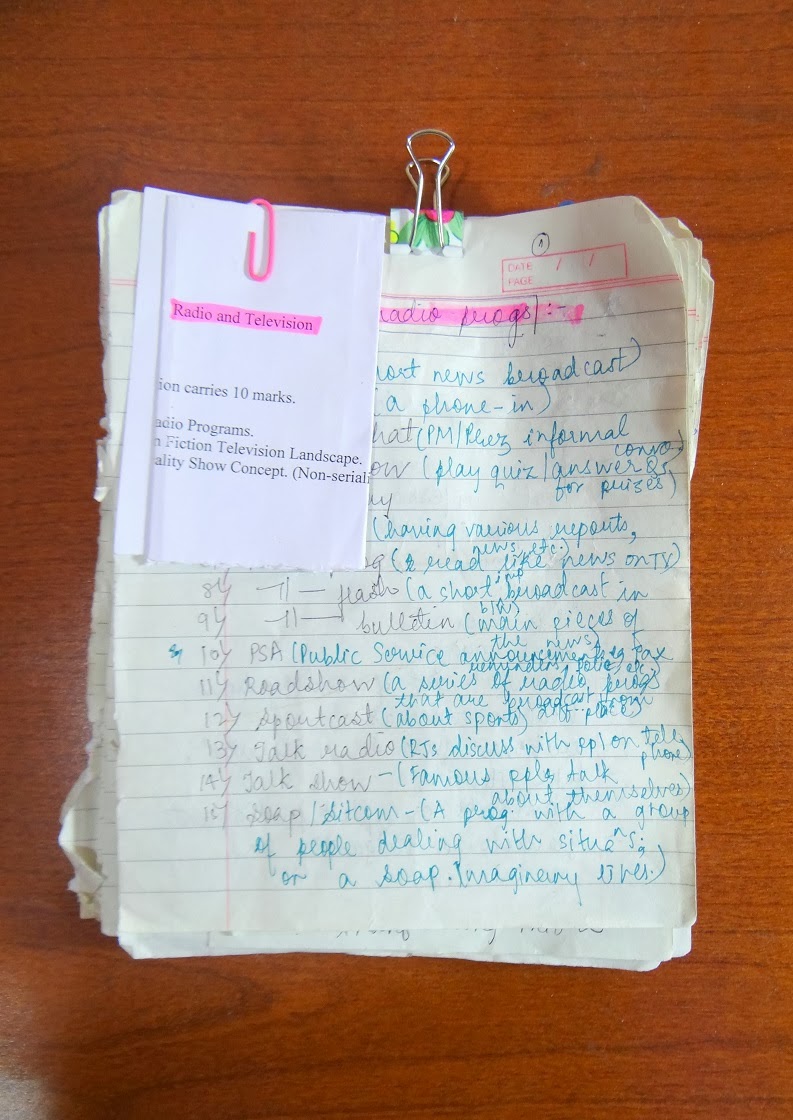 Radio and Television
ion carries 10 marks.
adio Programs.
n Fiction Television Landscape.
ality Show Concept. (Non-seriali
1
DATE / /
PAGE
radio progs):-
ort news broadcast)
a phone-in)
hat (PM/Prez informal
convo)
ow (play quiz/answer Qs
for prizes)
ay
(having various reports,
news, etc.)
g (& read like news on TV)
8) -11- flash (a short imp broadcast in
b/w)
9) -11- bulletin (main pieces of
the news)
10) PSA (Public Service announcements eg tax
reminders, polio, etc.)
11) Roadshow (a series of radio progs
that are broadcast from
12) Sportcast (about sports) diff. places)
13) Talk radio (RJs discuss with ppl on tele
phone)
14) Talk show - (Famous ppl talk
about themselves)
15) Soap/Sitcom - (A prog. with a group
of people dealing with situans;
or a soap. Imaginary lives.)